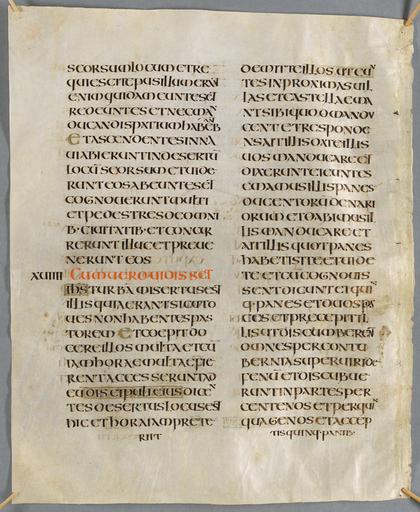 seorsum locum et re
quiescite pusillum erant
enim qui
redeuntes et nec man
ducandi spatium habeb
et ascendentes in na
ui abierunt in desertū
locū seorsum et uide
runt eos abeuntes et
cognouerunt multi
et pedestres de omni
b· ciuitatib· et concur
rerunt illuc et preue
nerunt eos
xuiiii Cum uero uidisset
ihs turbā misertus est
illis quia erant sicut o
ues non habentes pas
torem et coepit do
cere illos multa et cū
iam hora multa fie
rent accesserunt ad
eū discipuli eius dicen
tes desertus locus est
hic et hora iam prete
riit
demitte illos ut eūn
tes in proximas uil
las et castella ema
nt sibi quod mandu
cent et respondens
ait illis date illis
uos manducare et
dixerunt ei euntes
emamus illis panes
ducentorū denari
orum et dabimus il
lis manducare et
ait illis quot panes
habetis ite et uide
te et cū cognouis
sent dicunt ei quin
q· panes et duos pis
ces et precepit il
lis ut discūberent
omnes per contu
bernia super uiride
fenū et discubue
runt in partes per
centenos et per quin
quagenos et accep
tis quinq· panib·